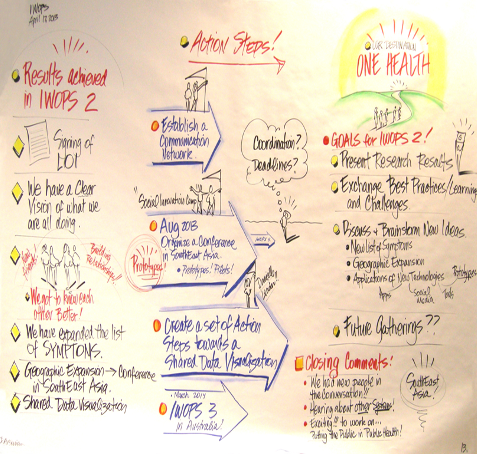 IWOPS
April 12 2013
Results achieved
in IWOPS 2
Signing of
LOI
We have a Clear
Vision of what we
are all doing.
Building
Relationships!!
We got to know each
other Better!
We have expanded the list
of SYMPTOMS.
Geographic Expansion → Conference
in SouthEast Asia.
Shared Data Visualization
Action Steps!
Establish a
Communication
Network
Coordination?
Deadlines?
"Social Innovation Camp"
Aug 2013
Organize a Conference
in SouthEast Asia.
• Prototypes! Pilots!
Prototypes
Create a set of Action
Steps towards a
Shared Data Visualization
• March 2014
IWOPS 3
in Australia!
OUR DESTINATION
ONE HEALTH
GOALS for IWOPS 2!
Present Research Results
Exchange Best Practices/Learning
and Challenges
Discuss + Brainstorm New Ideas
• New List of Symptoms
• Geographic Expansion
• Applications of New Technologies
Apps
Social
Media
Tools
Prototypes
Future Gatherings??
Closing Comments!
• We had new people in
the conversation!!
• Hearing about other Systems!
• Exciting!! to work on...
Putting the Public in Public Health!
SouthEast
Asia?